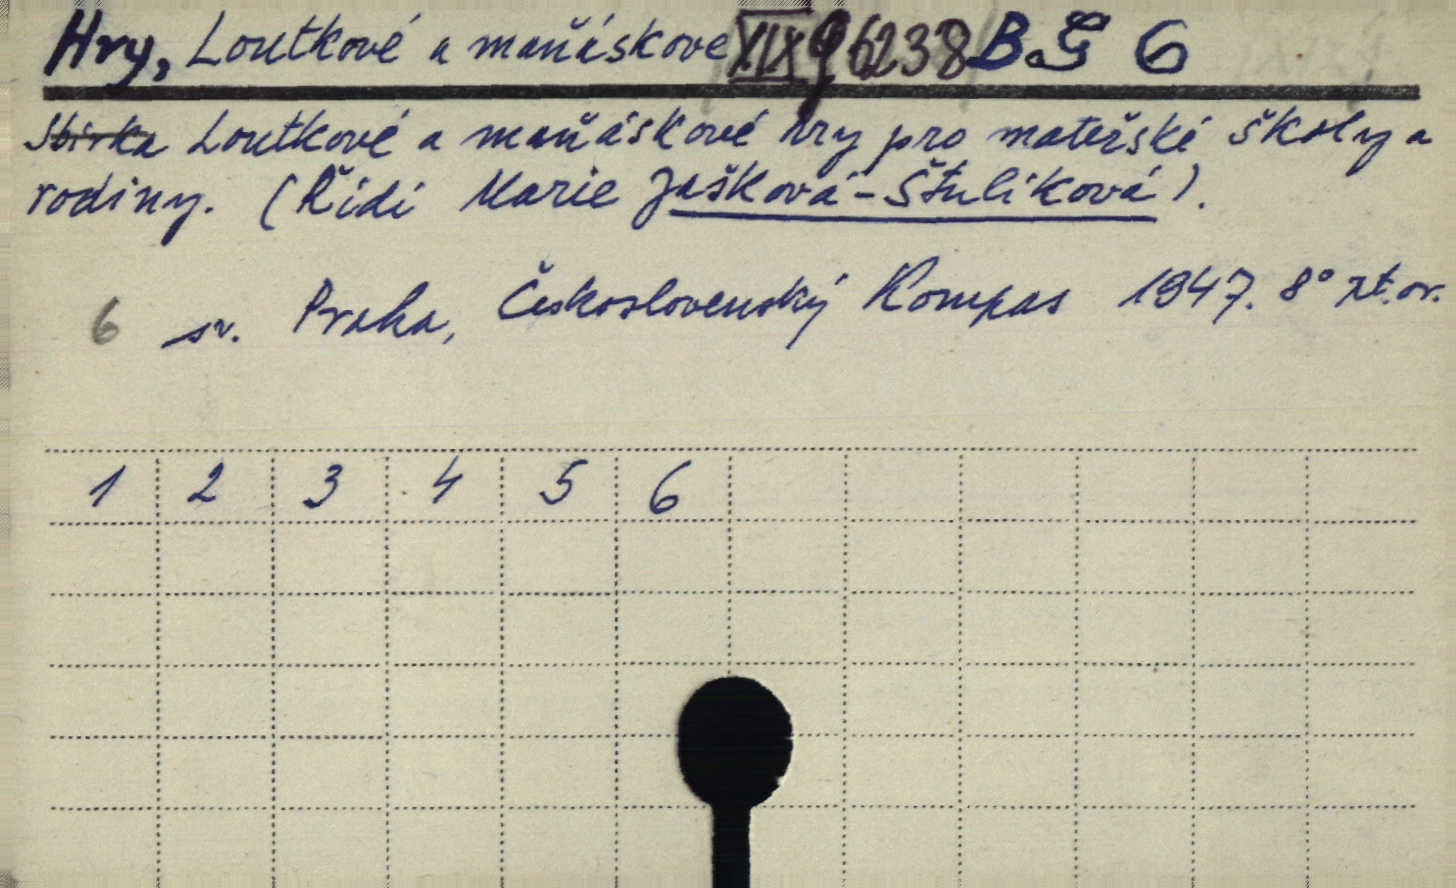 Hry, Loutkové a maňáskove XIX g 6238 B.G 6
Sbírka Loutkové a maňáskové hry pro mateřské školy a
rodiny. (Řídí Marie Jašková-Štulíková).
6 sv. Praha, Československý Kompas 1947. 8°
1 2 3 4 5 6